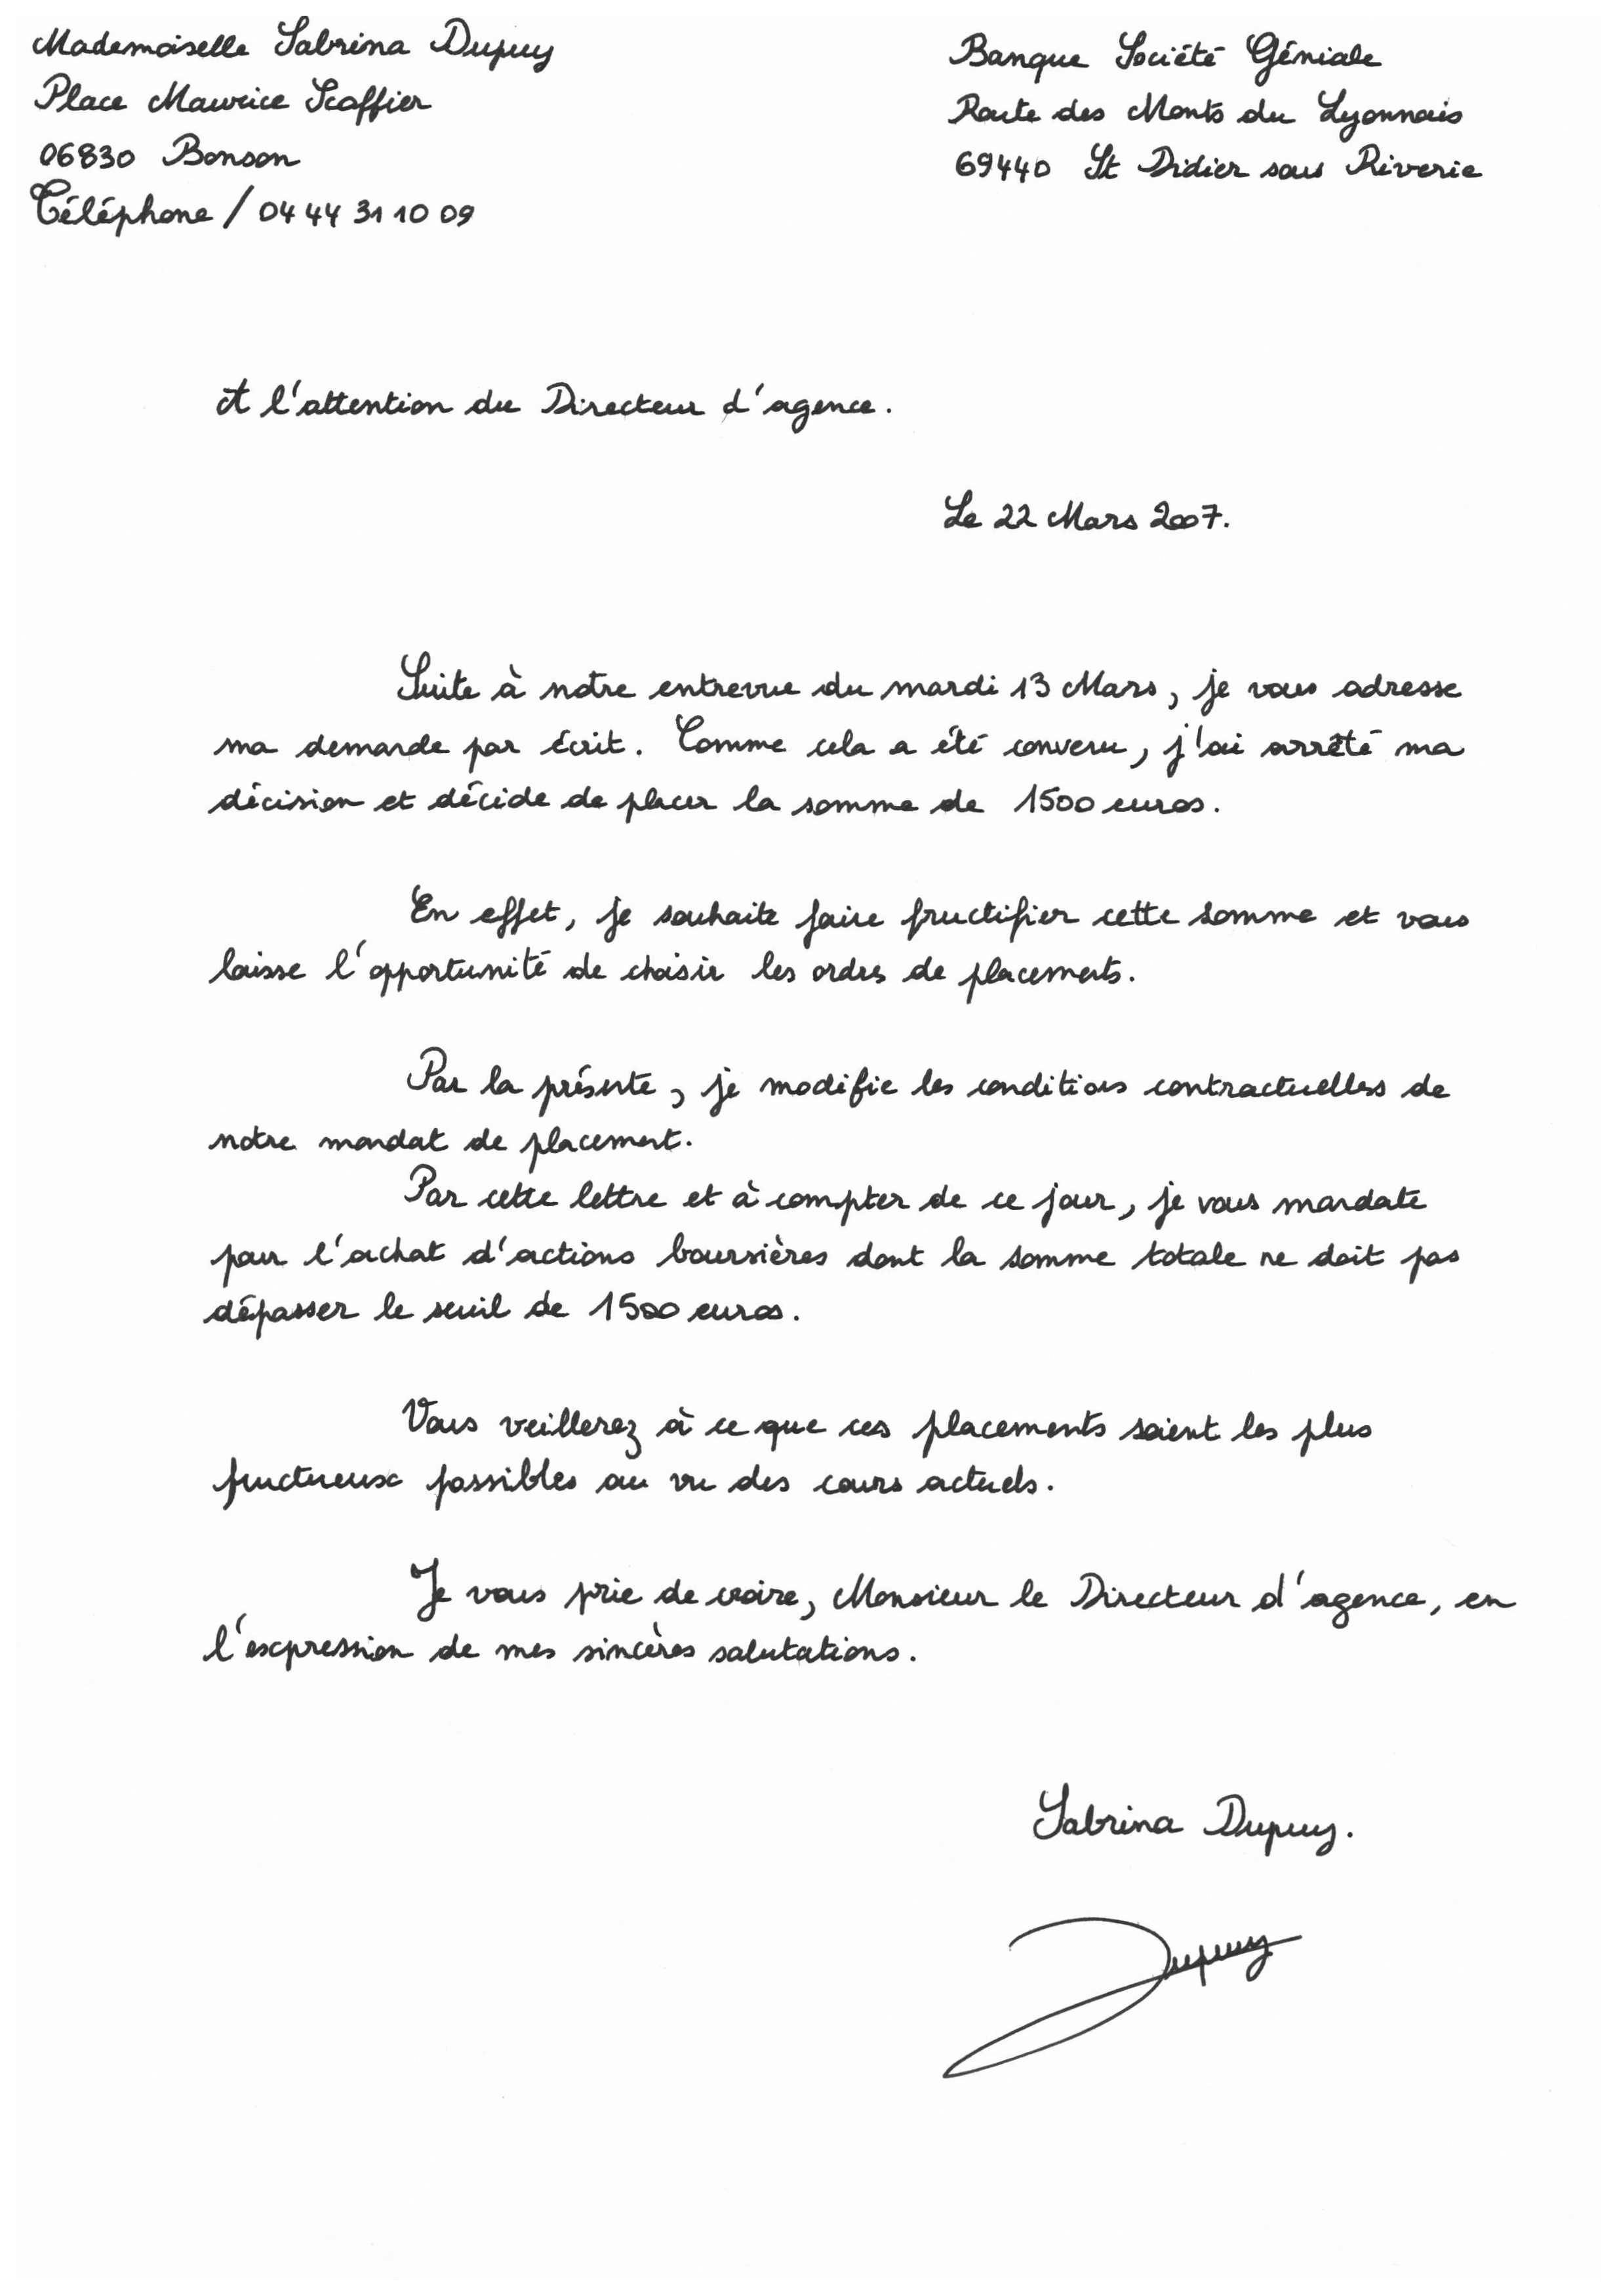 Mademoiselle Sabrina Dupuy
Place Maurice Scoffier
06830 Bonson
Téléphone / 04 44 31 10 09
Banque Société Géniale
Route des Monts du Lyonnais
69440 St Didier sous Riverie
A l'attention du Directeur d'agence.
Le 22 Mars 2007.
Suite à notre entrevue du mardi 13 Mars, je vous adresse
ma demande par écrit. Comme cela a été convenu, j'ai arrêté ma
décision et décide de placer la somme de 1500 euros.
En effet, je souhaite faire fructifier cette somme et vous
laisse l'opportunité de choisir les ordres de placements.
Par la présente, je modifie les conditions contractuelles de
notre mandat de placement.
Par cette lettre et à compter de ce jour, je vous mandate
pour l'achat d'actions boursières dont la somme totale ne doit pas
dépasser le seuil de 1500 euros.
Vous veillerez à ce que ces placements soient les plus
fructueux possibles au vu des cours actuels.
Je vous prie de croire, Monsieur le Directeur d'agence, en
l'expression de mes sincères salutations.
Sabrina Dupuy.
Dupuy